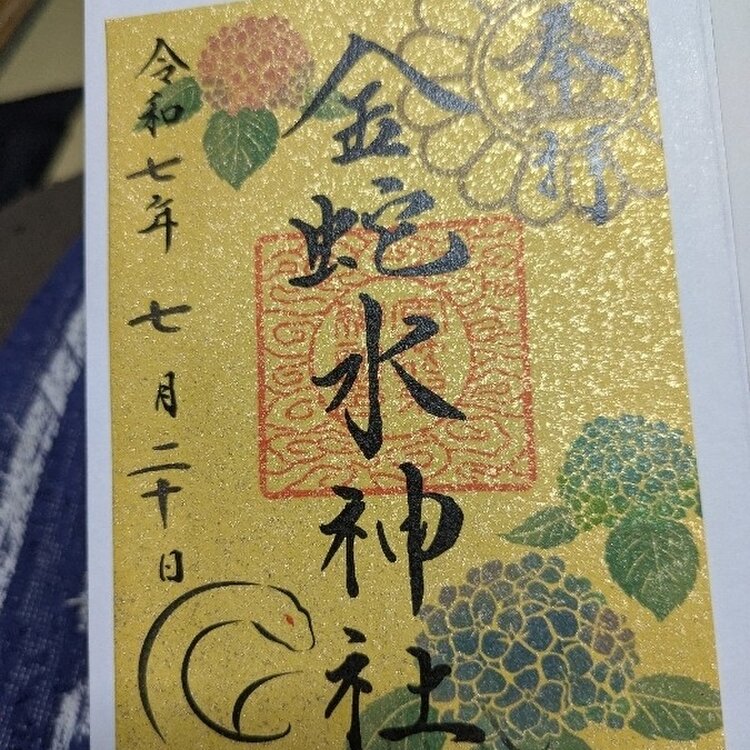 奉拝
金蛇水神社
令和七年七月二十日